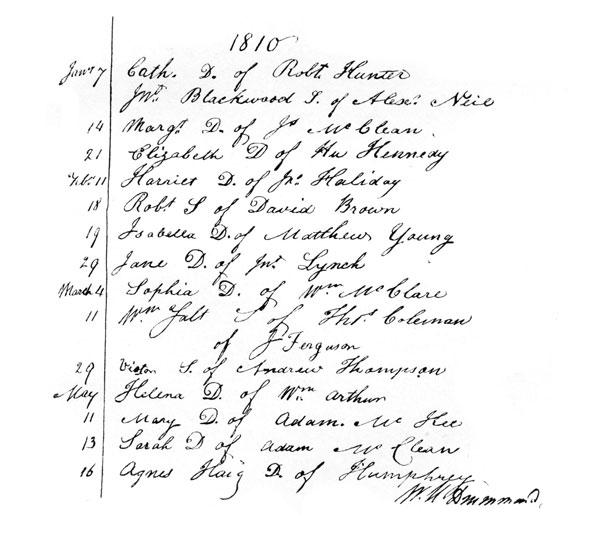 1810
Janr 7 Cath. D. of Robt. Hunter
Jno. Blackwood S. of Alexr. Neil
14 Margt. D. of Js McClean
21 Elizabeth D of Hu Kennedy
Feb. 11 Harriet D. of Jno. Haliday
18 Robt. S of David Brown
19 Isabella D. of Matthew Young
29 Jane D. of Jno. Lynch
March 4 Sophia D. of Wm. McClare
11 Wm Galt S of Thos. Coleman
of J Ferguson
29 S. of Andrew Thompson
May Helena D. of Wm. Arthur
11 Mary D. of Adam. Mc Kee
13 Sarah D of Adam McClean
16 Agnes Haig D. of Humphrey
Drummond